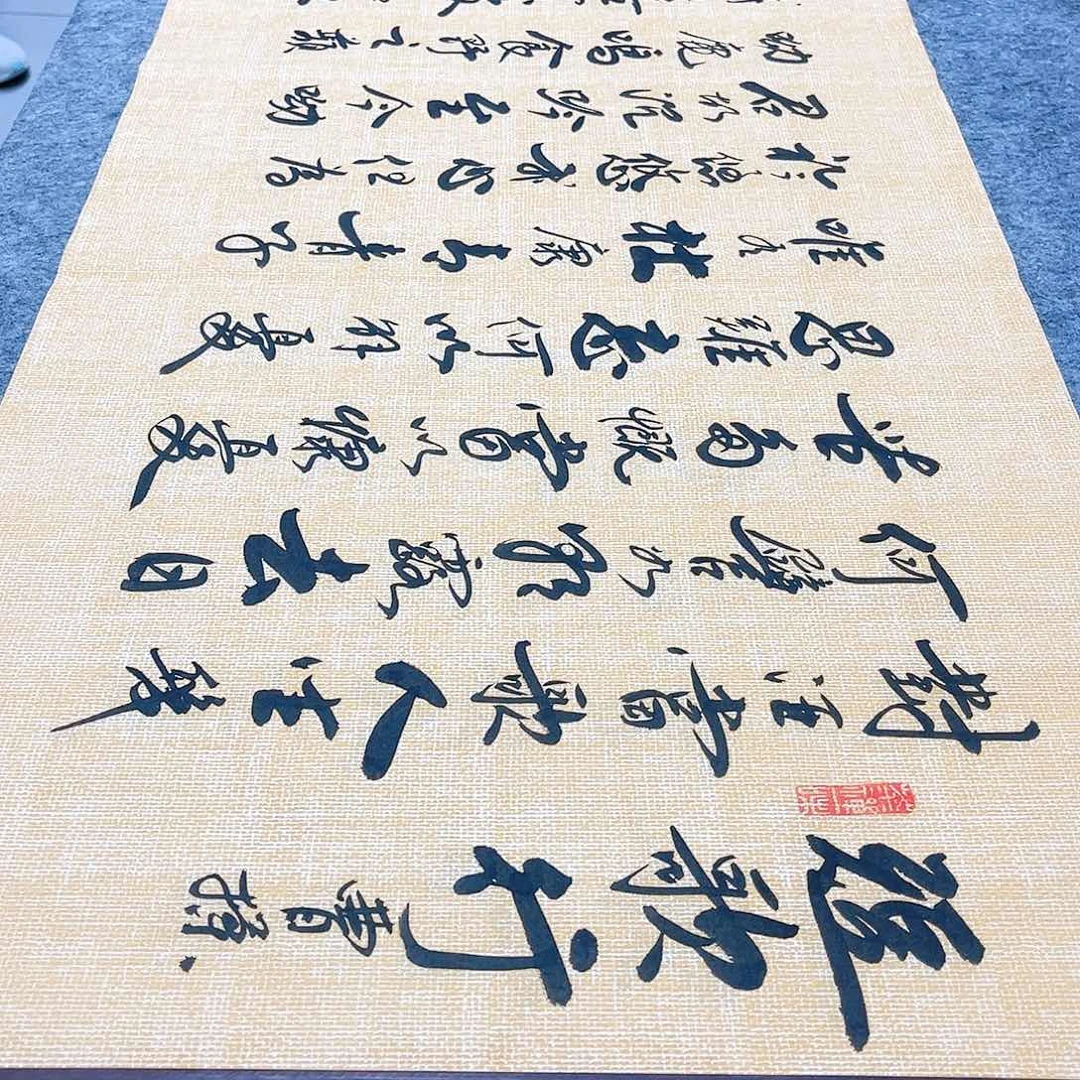 短歌行 曹操
對酒當歌人生幾
何譬如朝露去日
苦多慨當以慷憂
思難忘何以解憂
唯有杜康青青子
衿悠悠我心但為
君故沉吟至今呦
呦鹿鳴食野之蘋